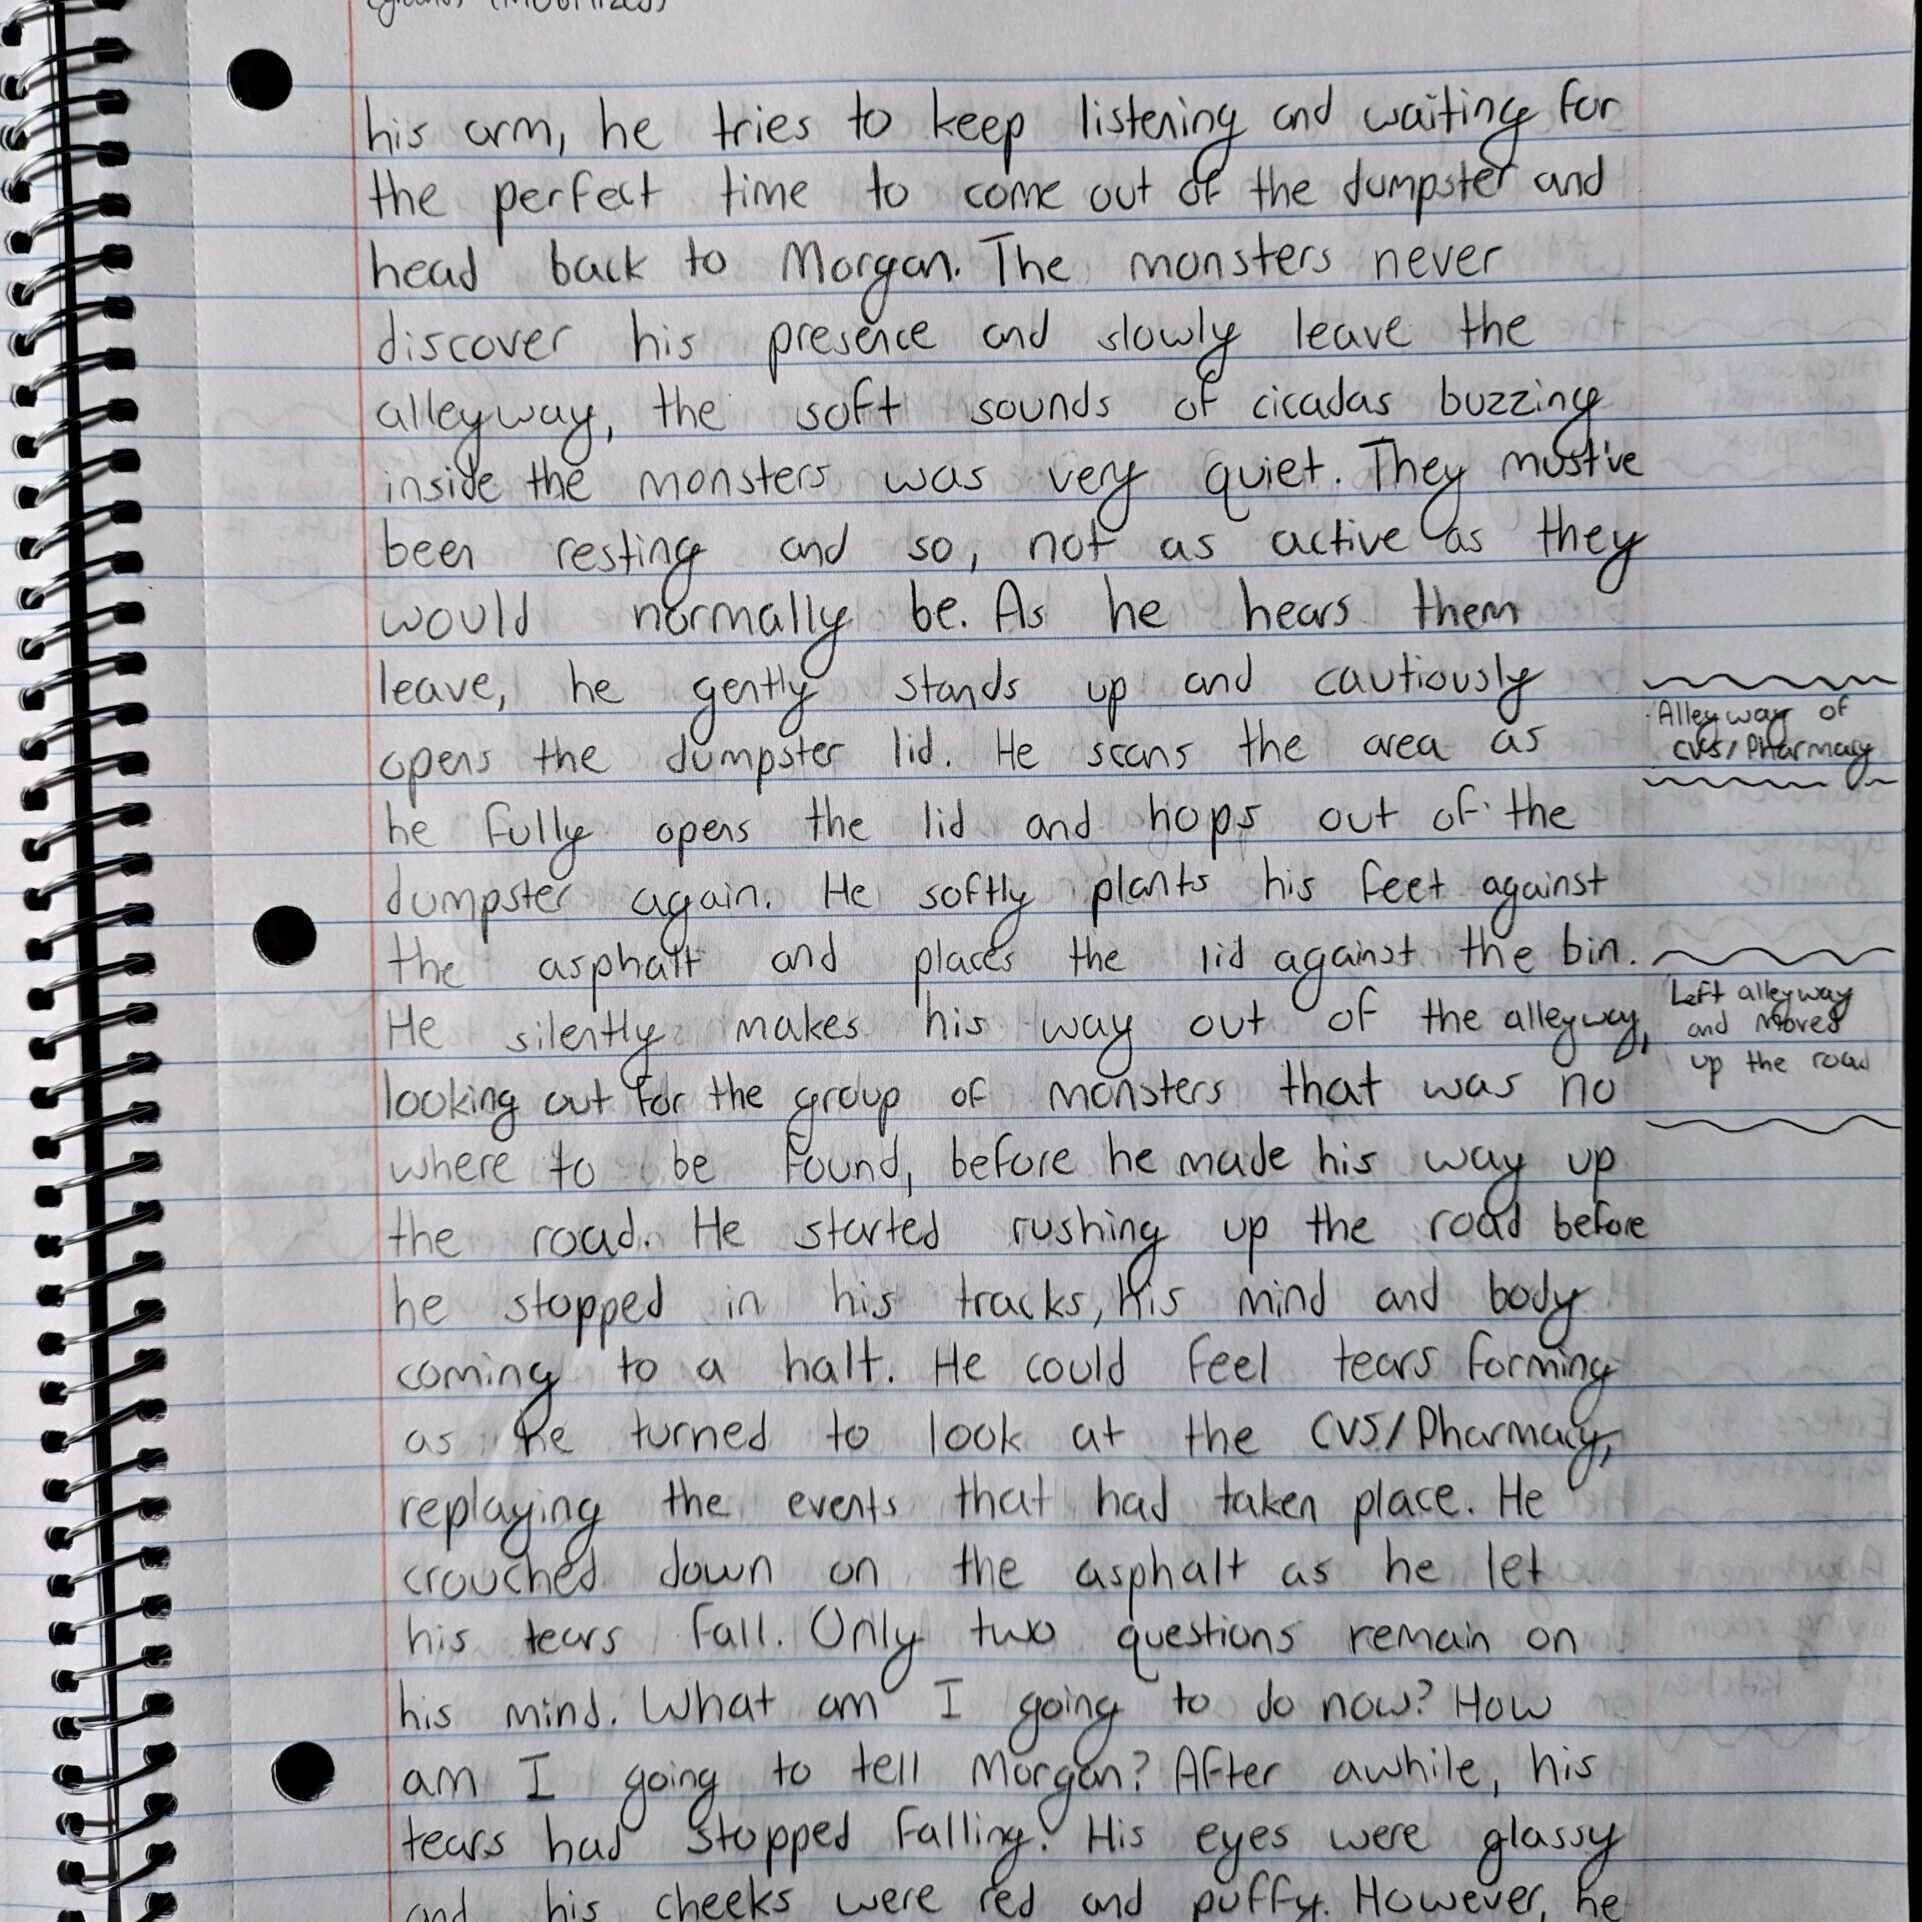 his arm, he tries to keep listening and waiting for
the perfect time to come out of the dumpster and
head back to Morgan. The monsters never
discover his presence and slowly leave the
alleyway, the soft sounds of cicadas buzzing
inside the monsters was very quiet. They must've
been resting and so, not as active as they
would normally be. As he hears them
leave, he gently stands up and cautiously
opens the dumpster lid. He scans the area as
Alleyway of
CVS/Pharmacy
he fully opens the lid and hops out of the
dumpster again. He softly plants his feet against
the asphalt and places the lid against the bin.
He silently makes his way out of the alleyway,
Left alleyway
and moved
up the road
looking out for the group of monsters that was no
where to be found, before he made his way up
the road. He started rushing up the road before
he stopped in his tracks, his mind and body
coming to a halt. He could feel tears forming
as he turned to look at the CVS/Pharmacy,
replaying the events that had taken place. He
crouched down on the asphalt as he let
his tears fall. Only two questions remain on
his mind. What am I going to do now? How
am I going to tell Morgan? After awhile, his
tears had stopped falling. His eyes were glassy
and his cheeks were red and puffy. However, he